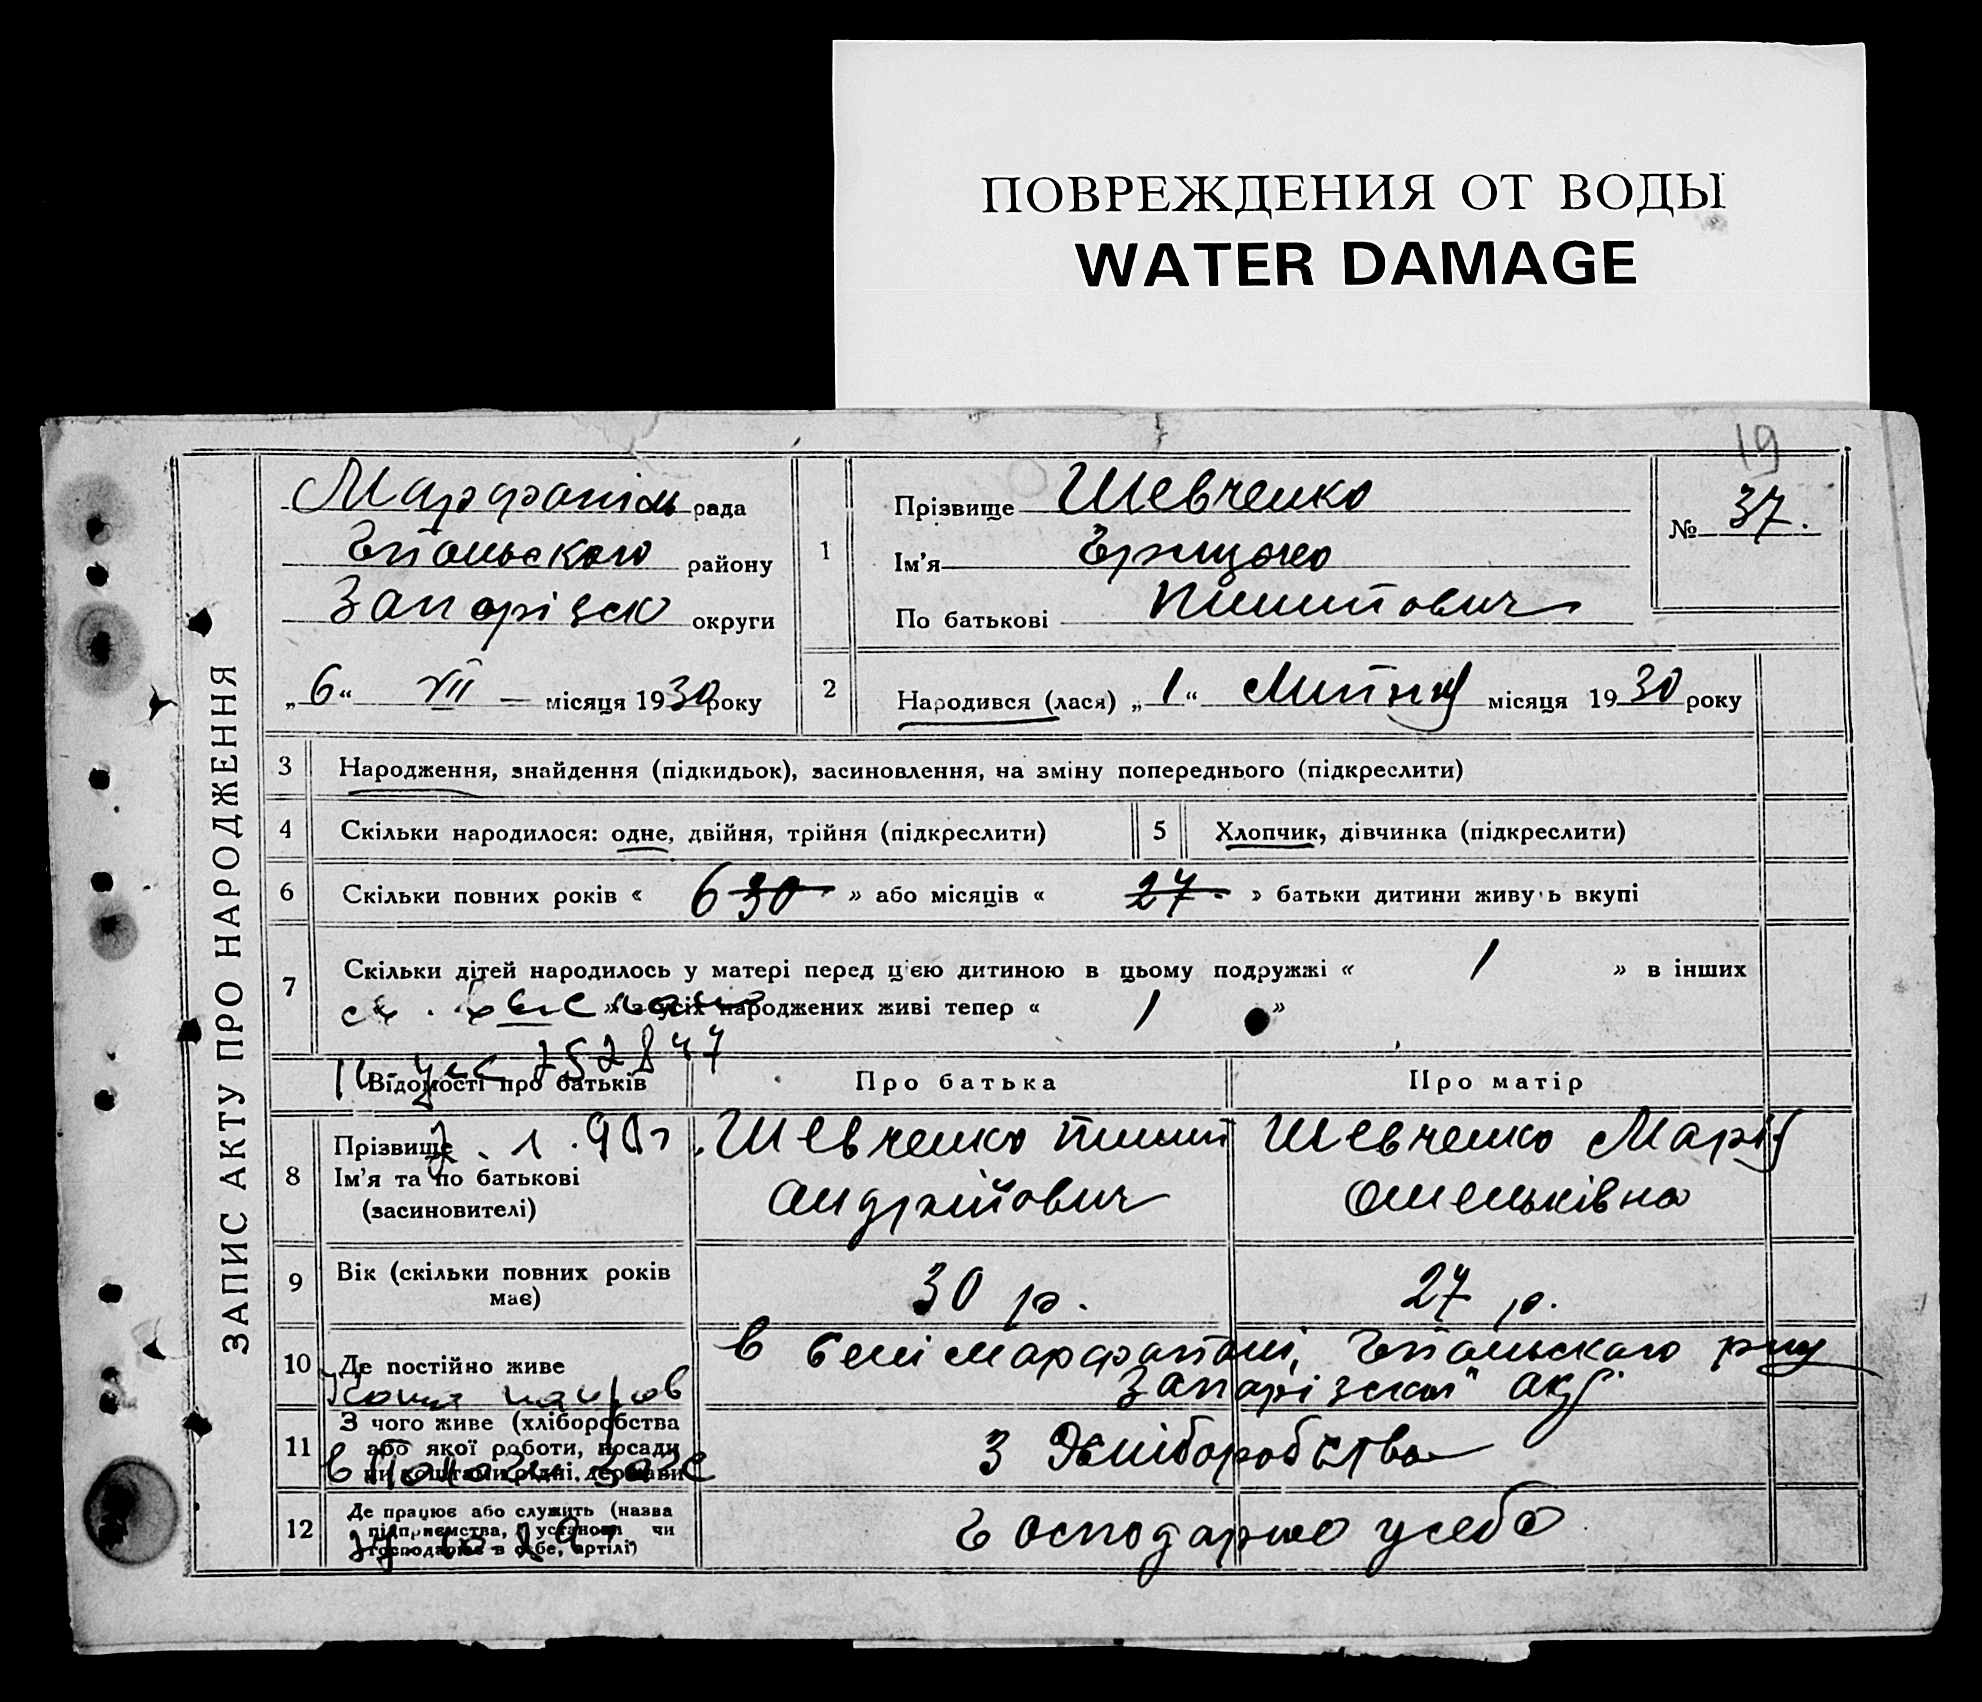 ПОВРЕЖДЕНИЯ ОТ ВОДЫ
WATER DAMAGE
19
ЗАПИС АКТУ ПРО НАРОДЖЕННЯ
Марфопіль рада
Гпольского району
Запорізско округи
„6“ VII — місяця 1930 року
1
Прізвище Шевченко
Ім'я Грицько
По батькові Пилипович
№ 37.
2
Народився (лася) „1“ Липня місяця 1930 року
3 Народження, знайдення (підкидьок), засиновлення, на зміну попереднього (підкреслити)
4 Скільки народилося: одне, двійня, трійня (підкреслити)
5 Хлопчик, дівчинка (підкреслити)
6 Скільки повних років « 6 30 » або місяців « 27 » батьки дитини живуть вкупі
7 Скільки дітей народилось у матері перед цією дитиною в цьому подружжі « 1 » в інших
» з усіх народжених живі тепер « 1 »
752847
Відомості про батьків
Про батька
Про матір
8 Прізвище
Ім'я та по батькові
(засновителі)
Шевченко Пилип
Андрійович
Шевченко Марія
Омельківна
9 Вік (скільки повних років
має)
30 р.
27 р.
10 Де постійно живе
в селі Марфополі, Гпольского р-ну
Запорізской окр.
11 З чого живе (хліборобства
або якої роботи, посади
чи коштами рідні, держави
З Хліборобства
12 Де працює або служить (назва
підприємства, установи чи
господарює в себе, артілі)
Господарює у себе